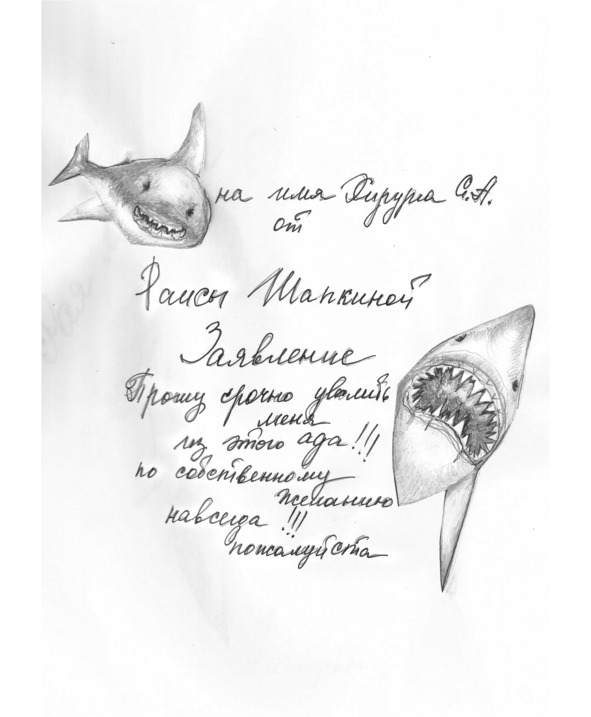 на имя Хирурга С.А.
от
Раисы Шапкиной
Заявление
Прошу срочно уволить
меня
из этого ада!!!
по собственному
желанию
навсегда !!!
пожалуйста